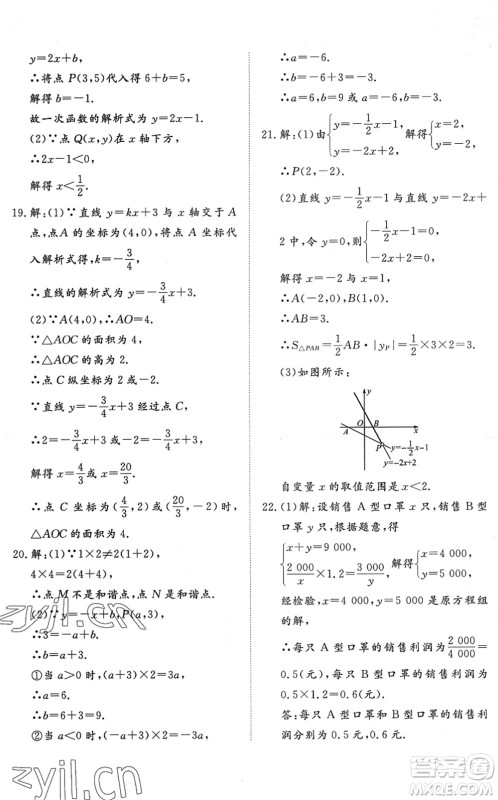 y=2x+b,
∴将点 P(3,5)代入得 6+b=5,
解得 b=-1.
故一次函数的解析式为 y=2x-1.
(2)∵点 Q(x,y)在 x 轴下方,
∴2x-1<0,
解得 x<1/2.
19. 解:(1)∵直线 y=kx+3 与 x 轴交于 A
点,点 A 的坐标为(4,0),将点 A 坐标代
入解析式得,k=-3/4,
∴直线的解析式为 y=-3/4x+3.
(2)∵A(4,0),∴AO=4.
∵△AOC 的面积为 4,
∴△AOC 的高为 2.
∴点 C 纵坐标为 2 或-2.
∵直线 y=-3/4x+3 经过点 C,
∴2=-3/4x+3 或-2=-3/4x+3,
解得 x=4/3 或 x=20/3.
∴点 C 坐标为(4/3,2)或(20/3,-2)时,
△AOC 的面积为 4.
20. 解:(1)∵1×2≠2(1+2),
4×4=2(4+4),
∴点 M 不是和谐点,点 N 是和谐点.
(2)∵y=-x+b,P(a,3),
∴3=-a+b.
∴b=a+3.
①当 a>0 时,(a+3)×2=3a,
∴a=6.
∴b=a+3=9.
②当 a<0 时,(-a+3)×2=-3a,
∴a=-6.
∴b=-6+3=-3.
∴a=6,b=9 或 a=-6,b=-3.
21. 解:(1)由{y=-1/2x-1, y=-2x+2, 解得{x=2, y=-2.
∴P(2,-2).
(2)直线 y=-1/2x-1 与直线 y=-2x+
2 中,令 y=0,则{-1/2x-1=0, -2x+2=0,
解得 x=-2 与 x=1.
∴A(-2,0),B(1,0).
∴AB=3.
∴S△PAB=1/2AB·|yP|=1/2×3×2=3.
(3)如图所示:
y
O B
A x
P
y=-1/2x-1
y=-2x+2
自变量 x 的取值范围是 x<2.
22. 解:(1)设销售 A 型口罩 x 只,销售 B 型
口罩 y 只,根据题意,得
{x+y=9 000, 2 000/x×1.2=3 000/y, 解得{x=4 000, y=5 000.
经检验,x=4 000,y=5 000 是原方程组
的解,
∴每只 A 型口罩的销售利润为2 000/4 000=
0.5(元),每只 B 型口罩的销售利润为
0.5×1.2=0.6(元).
答:每只 A 型口罩和 B 型口罩的销售利
润分别为 0.5 元,0.6 元.
zyjl.cn
zyjl.cn
作业精灵
答案圈
MXQE.COM